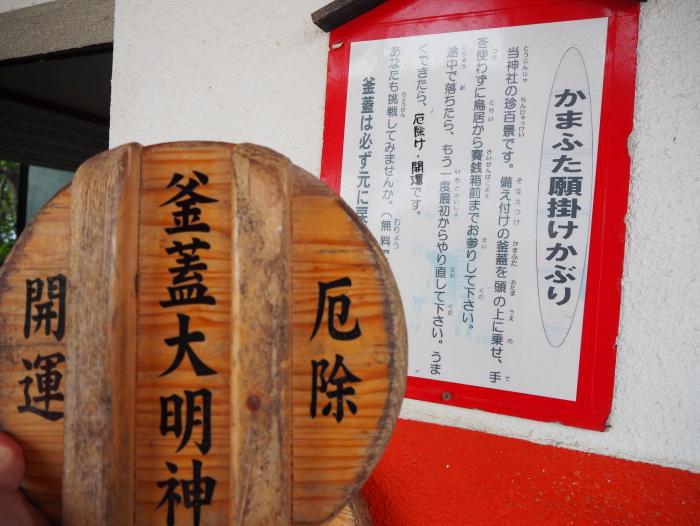 かまふた願掛けかぶり
当神社の珍百景です。備え付けの釜蓋を頭の上に乗せ、手
を使わずに鳥居から賽銭箱前までお参りして下さい。
途中で落ちたら、もう一度最初からやり直して下さい。うま
くできたら、厄除け・開運です。
あなたも挑戦してみませんか。(無料
釜蓋は必ず元に戻
厄除
釜蓋大明神
開運